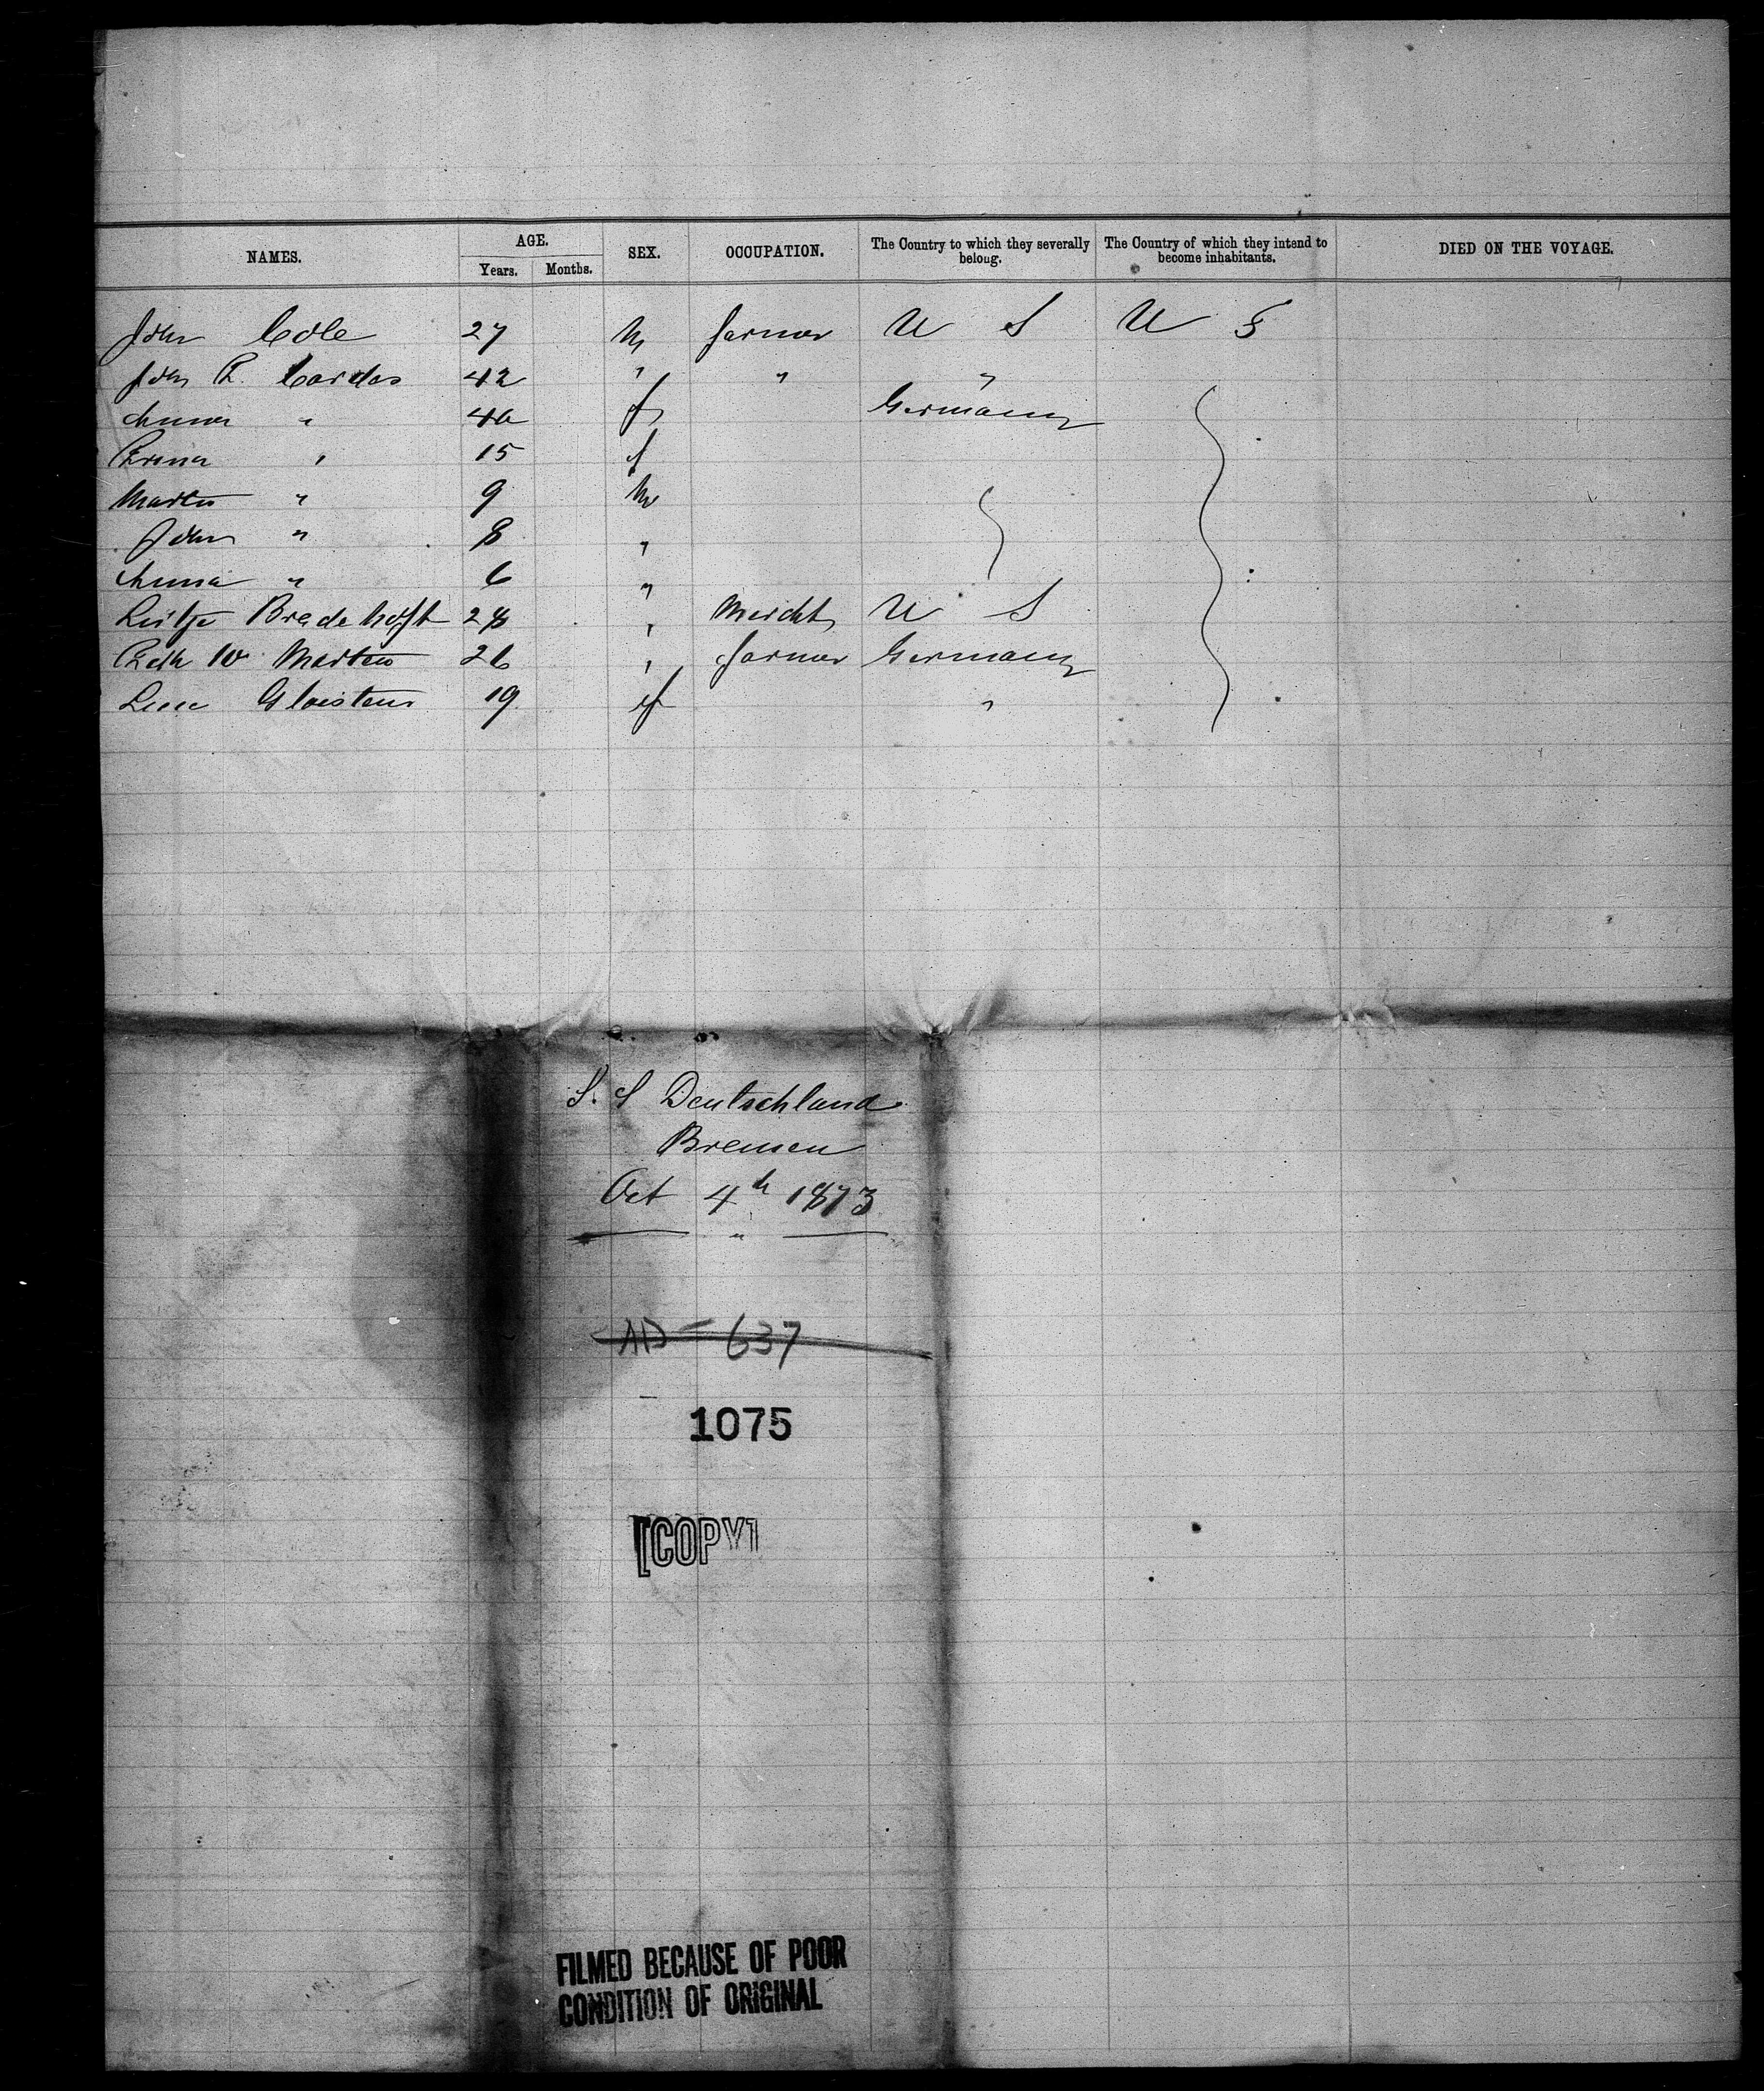 NAMES. AGE. Years. Months. SEX. OCCUPATION. The Country to which they severally belong. The Country of which they intend to become inhabitants. DIED ON THE VOYAGE.
John Cole 27 M farmer U S U S
John Cordes 42 " " "
Anna " 40 f Germany
" 15 f
Martin " 9 M
John " 8 "
Anna " 6 "
Lütje Bredehöft 28 " Mercht U S
W Martin 26 " farmer Germany
Line Gloistein 19 f "
S. S Deutschland
Bremen
Oct 4th 1873
"
AD = 637
1075
[COPY]
FILMED BECAUSE OF POOR
CONDITION OF ORIGINAL